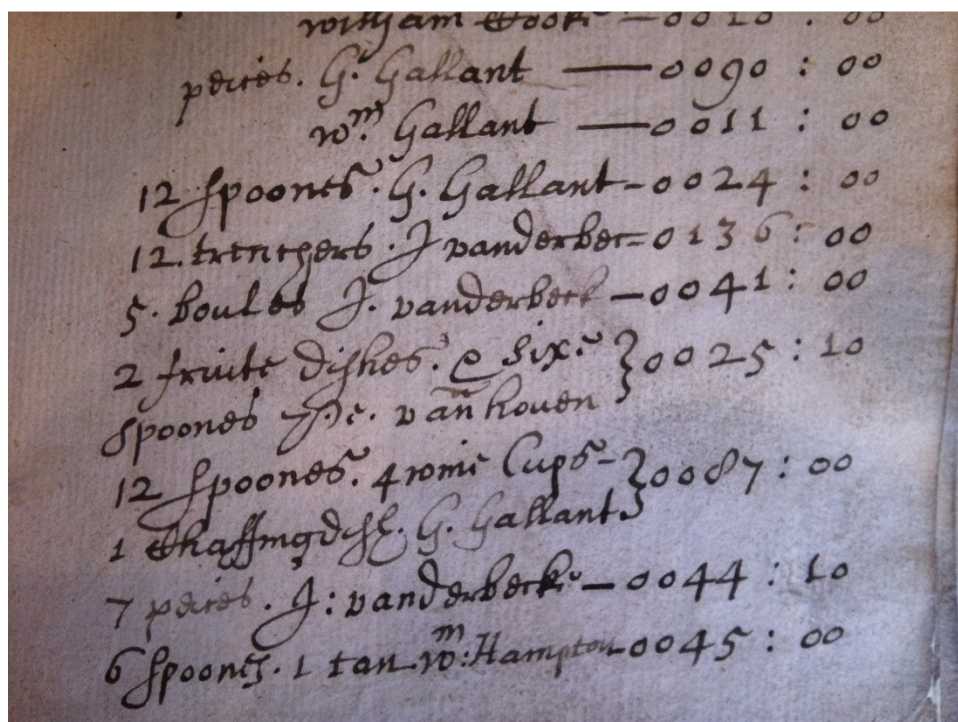 william Cooke — 0010 : 00
peices. G. Gallant — 0090 : 00
Wm. Gallant — 0011 : 00
12 Spoones. G. Gallant - 0024 : 00
12. trenchers. J vanderbec = 0136 : 00
5. boules J. vanderbeck — 0041 : 00
2 fruite dishes. & Sixe } 0025 : 10
Spoones vanhouen
12 Spoones. 4 wine Cups - } 0087 : 00
1 Chaffingdish. G. Gallant
7 peices. J : vanderbecke — 0044 : 10
6 Spoones. 1 tan Wm: Hampton - 0045 : 00